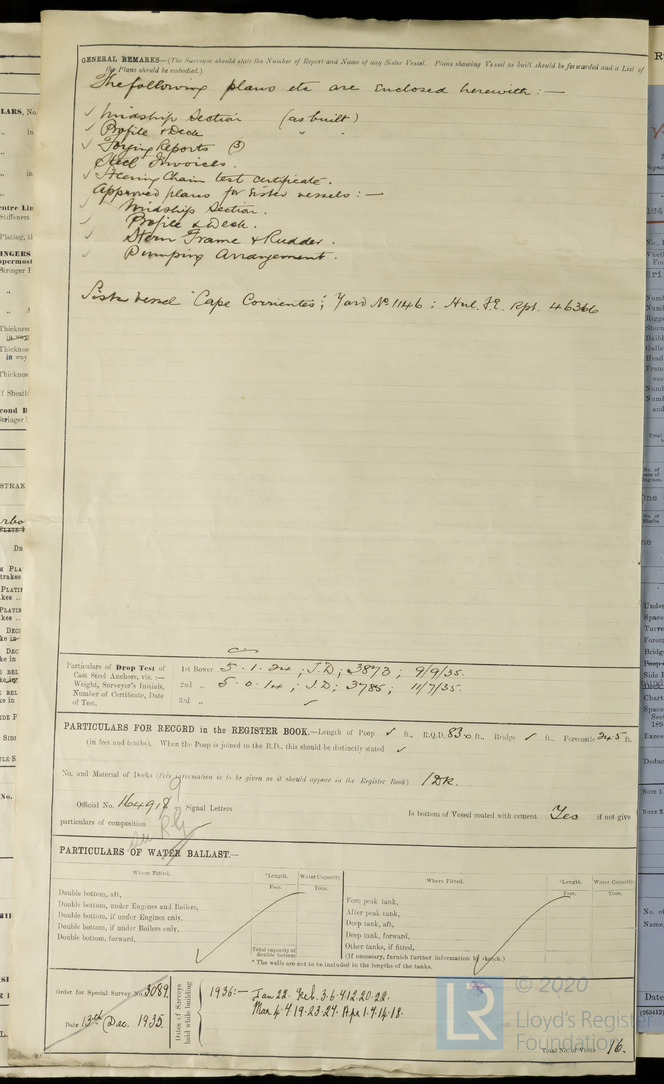 GENERAL REMARKS—(The Surveyor should state the Number of Report and Name of any Sister Vessel. Plans showing Vessel as built should be forwarded and a List of
the Plans should be embodied.)
The following plans etc are enclosed herewith :—
✓ Midship Section (as built)
✓ Profile & Deck " "
✓ Forging Reports (3)
Steel Invoices.
✓ Steering Chain test certificate.
Approved plans for sister vessels :—
✓ Midship Section.
✓ Profile & Deck.
✓ Stern Frame & Rudder.
✓ Pumping Arrangement.
Sister vessel "Cape Corrientes"; Yard No 1146 : Hul. F.E. Rpt. 46366
Particulars of Drop Test of
Cast Steel Anchors, viz. :—
Weight, Surveyor's Initials,
Number of Certificate, Date
of Test.
1st Bower 5.1.24 ; J.D ; 3873 ; 9/9/35.
2nd " 5.0.14 ; J.D ; 3785 ; 11/7/35.
3rd " ✓
PARTICULARS FOR RECORD in the REGISTER BOOK.—Length of Poop ✓ ft., R.Q.D. 83.0 ft., Bridge ✓ ft., Forecastle 24.5 ft.
(in feet and tenths). When the Poop is joined to the B.D., this should be distinctly stated ✓
No. and Material of Decks (this information is to be given as it should appear in the Register Book) 1 DK.
Official No. 164918 Signal Letters Is bottom of Vessel coated with cement Yes if not give
particulars of composition
PARTICULARS OF WATER BALLAST.—
Where Fitted. *Length. Water Capacity Where Fitted. *Length. Water Capacity
Feet. Tons. Feet. Tons.
Double bottom, aft,
Double bottom, under Engines and Boilers,
Double bottom, if under Engines only,
Double bottom, if under Boilers only,
Double bottom, forward,
Total capacity of
double bottom
Fore peak tank,
After peak tank,
Deep tank, aft,
Deep tank, forward,
Other tanks, if fitted,
(If necessary, furnish further information by sketch.)
* The wells are not to be included in the lengths of the tanks.
Order for Special Survey No. 3089
Date 13th Dec. 1935.
Dates of Surveys
held while building
1936:— Jan 22. Feb. 3.6.7.12.20.22.
Mar 4.7.19.23.27. Apr 1.7.14.18.
Total No. of Visits 16.
© 2020
LR
Lloyd's Register
Foundation